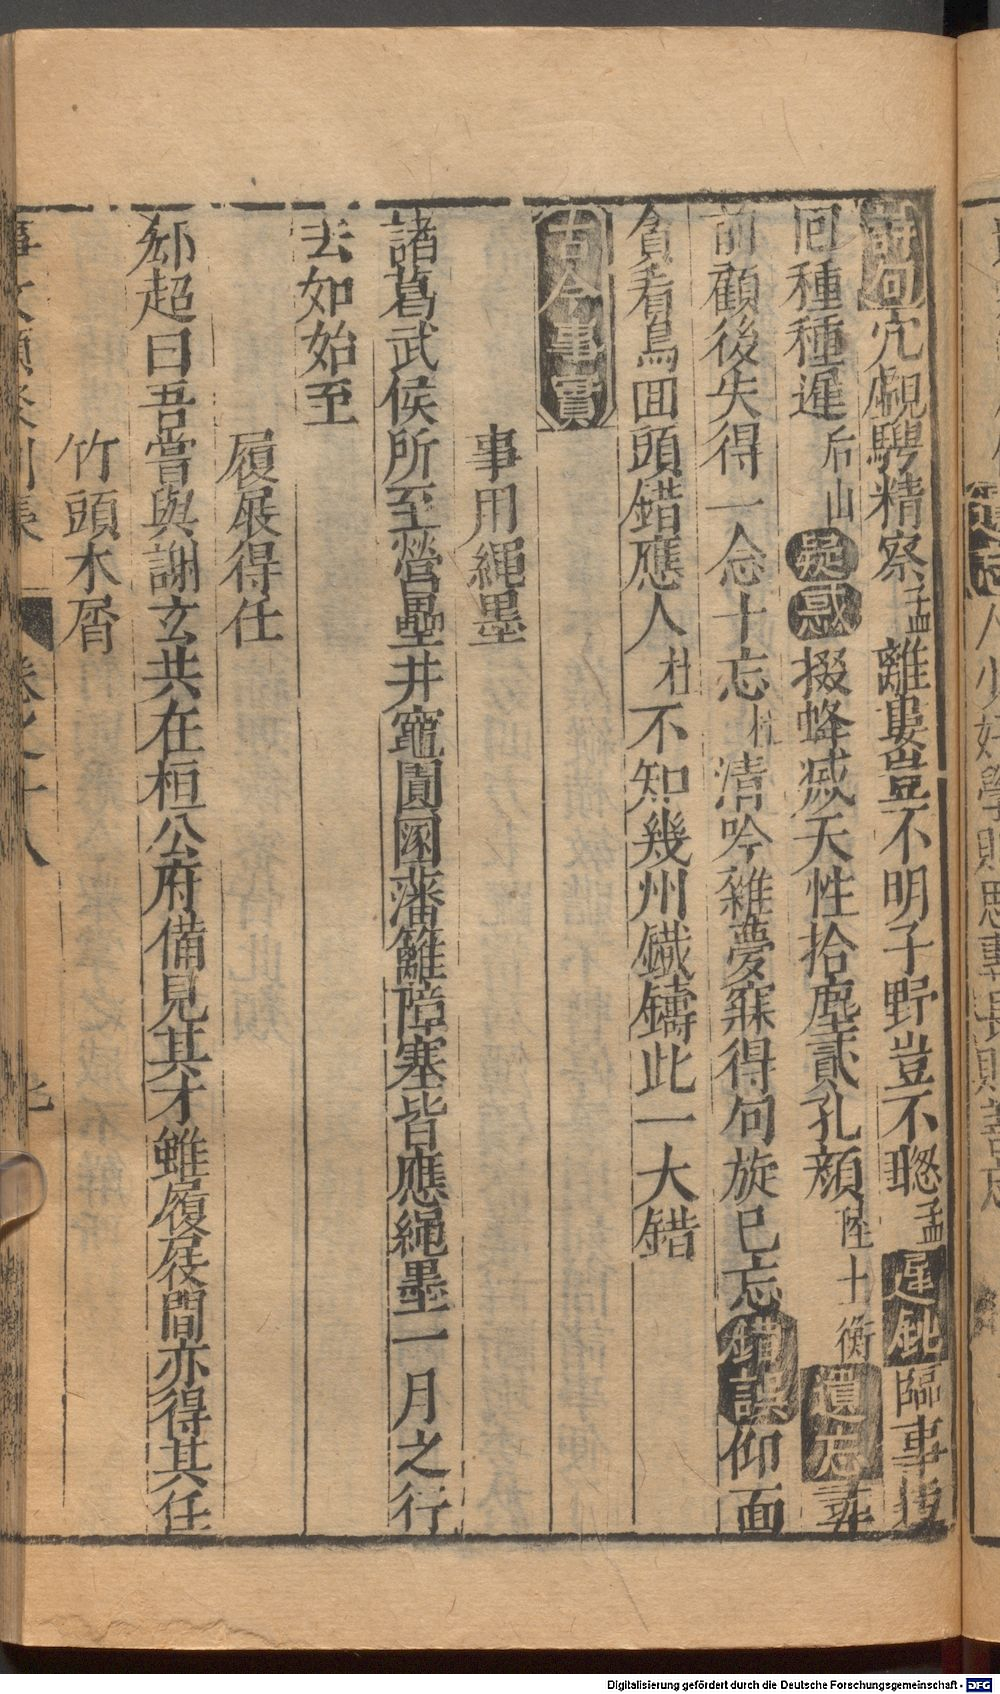 詩句宂覷騁精察孟離婁豈不明子野豈不聰孟遲鈍臨事授
回種種遲后山疑惑掇蜂滅天性拾塵貳孔顔陸士衡遺忘
前顧後失得一念十忘杜清吟雜夢寐得句旋已忘錯誤仰面
貪看鳥囬頭錯應人杜不知幾州鐵鑄此一大錯
古今事實
事用繩墨
諸葛武侯所至營壘井竈圊圂藩籬障塞皆應繩墨一月之行
去如始至
履屐得任
郄超曰吾嘗與謝玄共在桓公府備見其才雖履屐間亦得其任
竹頭木屑
事文類聚別集 卷之十八
Digitalisierung gefördert durch die Deutsche Forschungsgemeinschaft - DFG